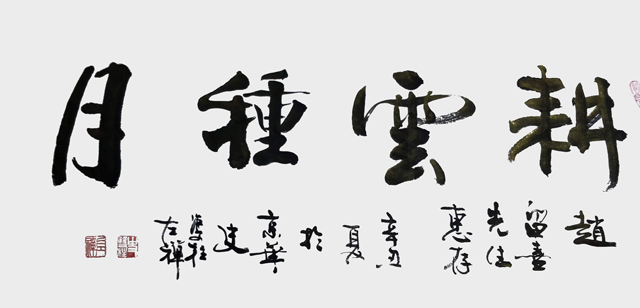 耕雲種月
趙
留喜
先生
惠存
辛丑
夏
於
京華
建
左禪